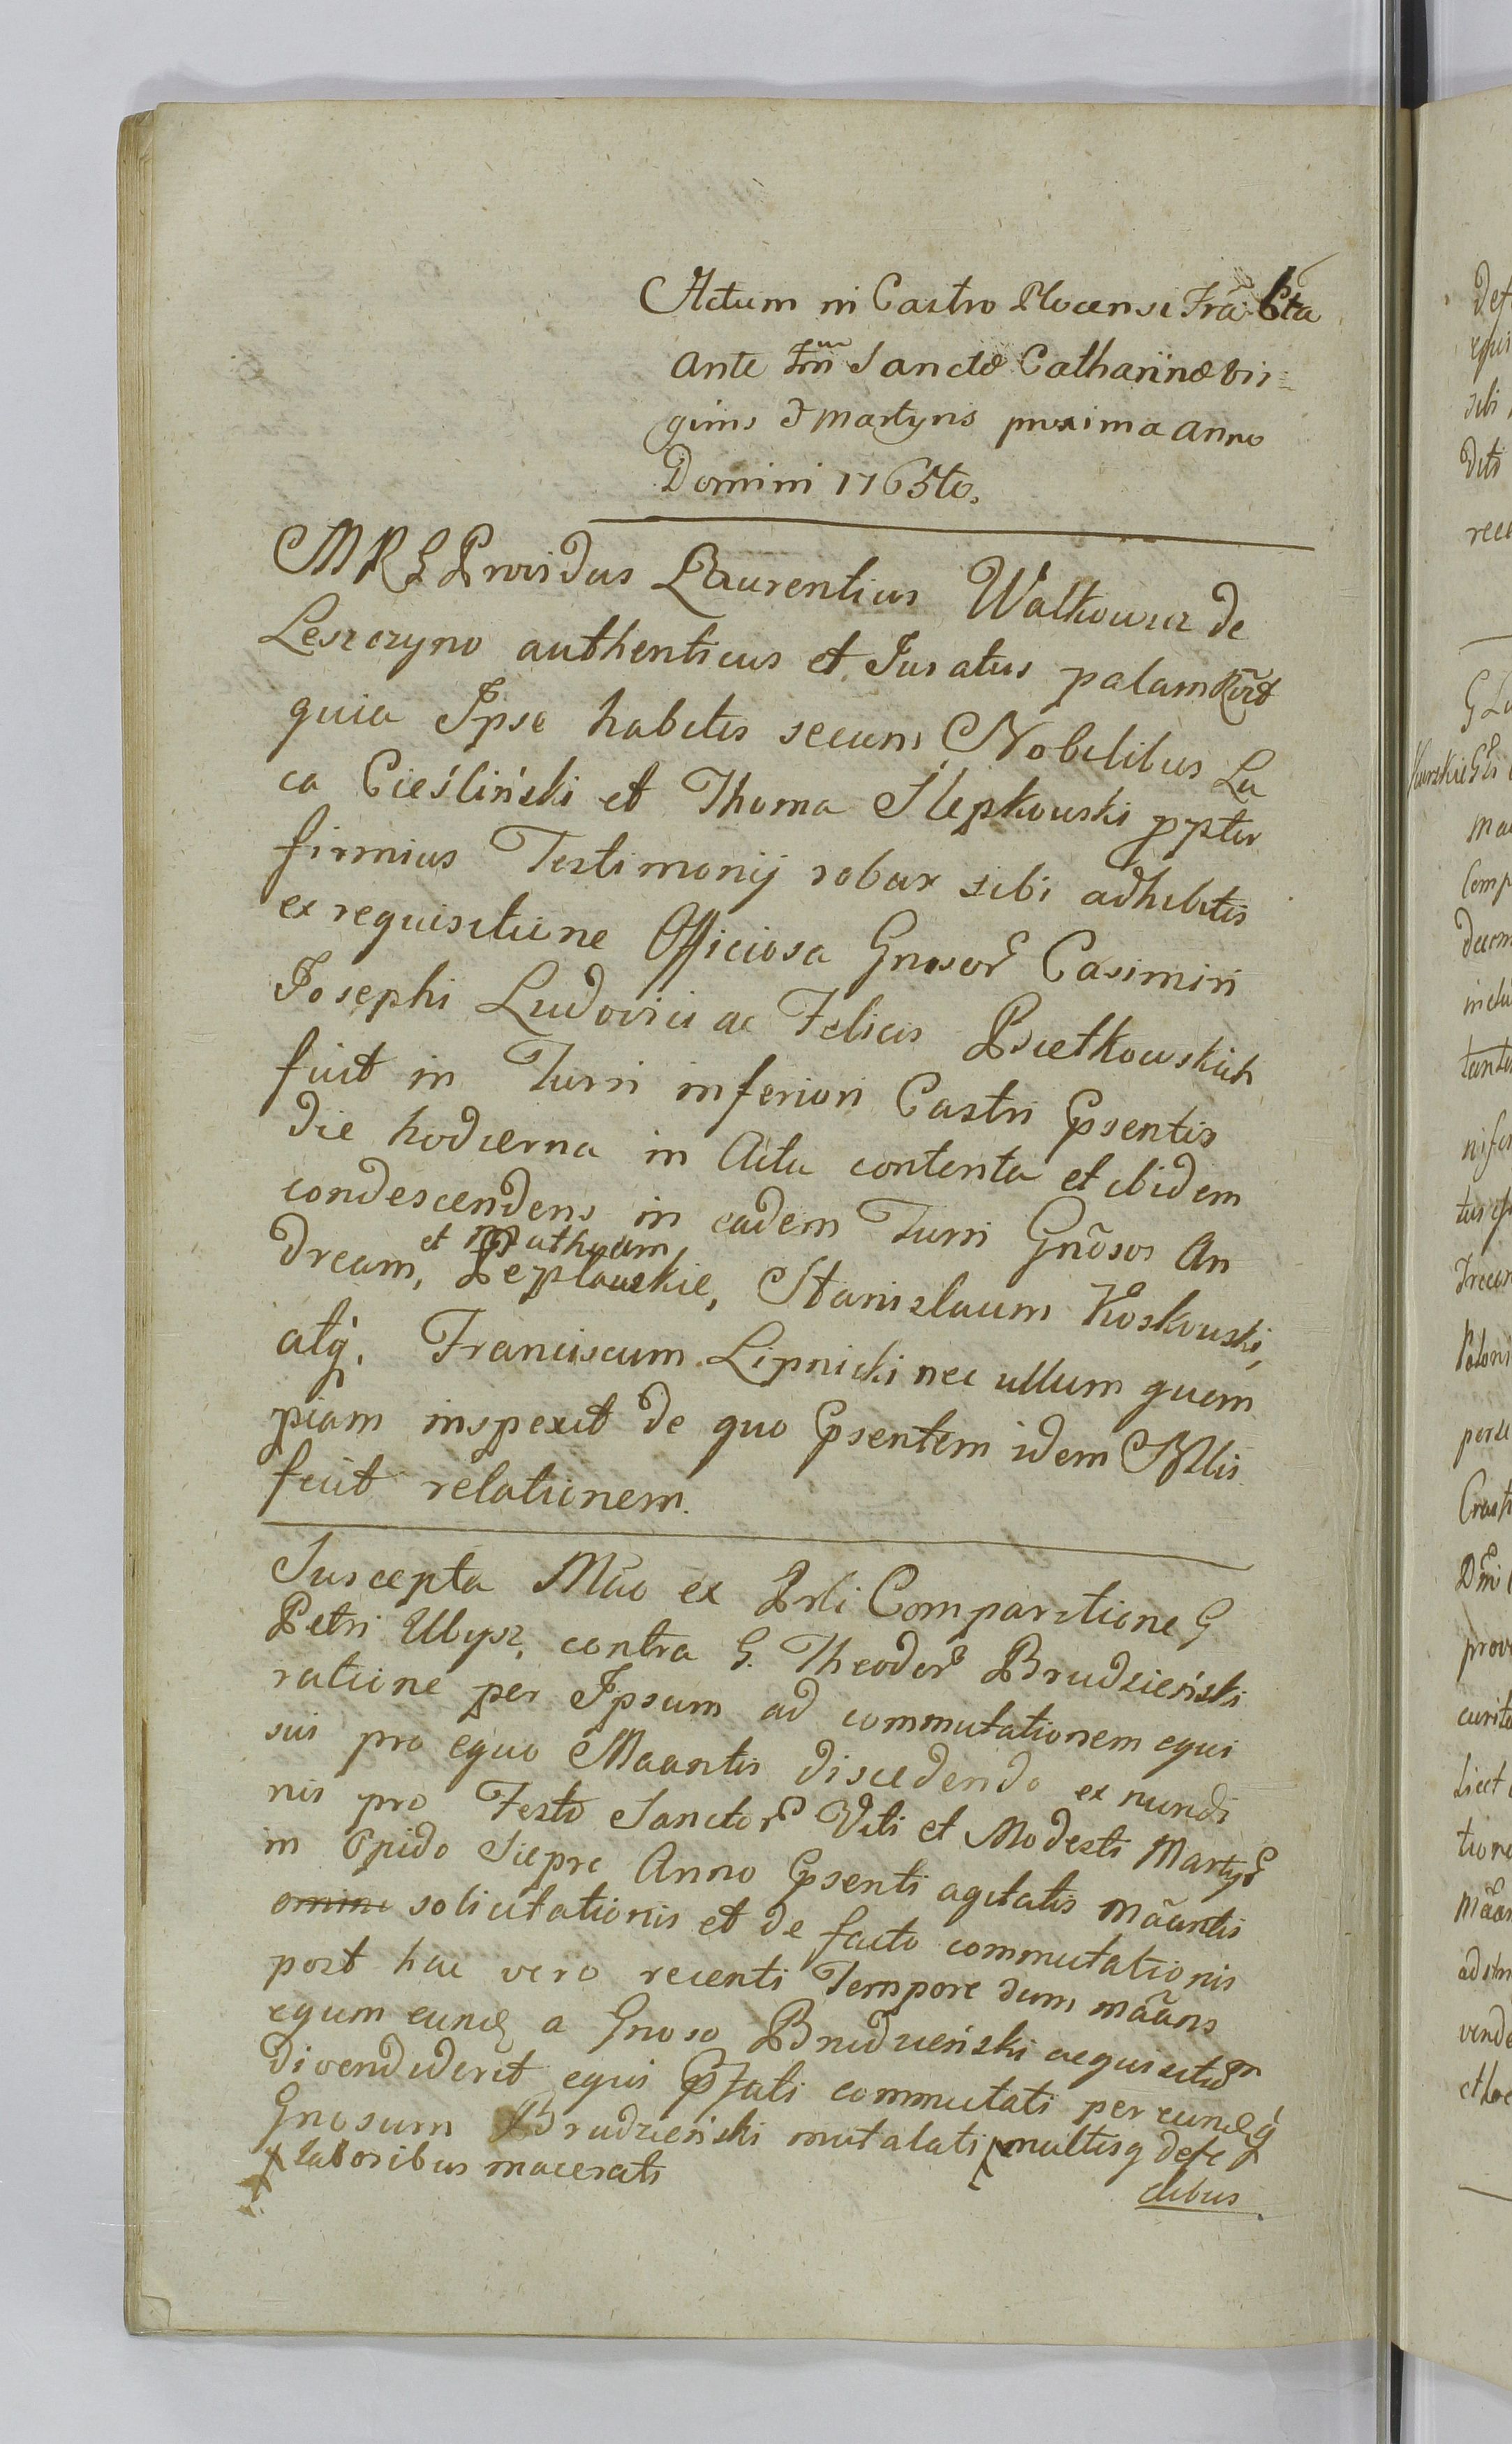 Actum in Castro Plocensi Fra 6ta
ante Fm Sanctæ Catharinæ Vir=
ginis & Martyris proxima Anno
Domini 1765to.
MRG Providus Laurentius Walkowicz de
Leszczyno authenticus et Juratus palam Rcit
quia Ipse habitis secum Nobilibus Lu
ca Cieśliński et Thoma Slepkowski ppter
firmius Testimonij robur sibi adhibitis
ex requisitione Officiosa Gnosor Casimiri
Josephi Ludovici ac Felicis Psietkowskich
fuit in Turri inferiori Castri Psentis
die hodierna in Actu contenta et ibidem
condescendens in eadem Turri Gnõsos An
dream, et Mathæum, Peplowskie, Stanislaum Koskowski,
atq. Franciscum Lipnicki nec ullum quem
piam inspexit de quo Psentem idem Mlis
fecit relationem.
Suscepta Mão ex Prli Comparitione G
Petri Ulysz, contra G. Theodor Brudzieński
ratione per Ipsum ad commutationem equi
sui pro equo Maantis discedendo ex nundi
nis pro Festo Sanctor Viti et Modesti Martyr
in Opido Sieprc Anno Psenti agitatis mãantis
omini solicitationis et de facto commutationis
post hac vero recenti Tempore dum mãans
equm eund a Gnoso Brudzieński acquisitum
divendiderit equi Pfati commutati per eundq
Gnosum Brudzieński mutalati multisq defe
laboribus macerati
ctibus